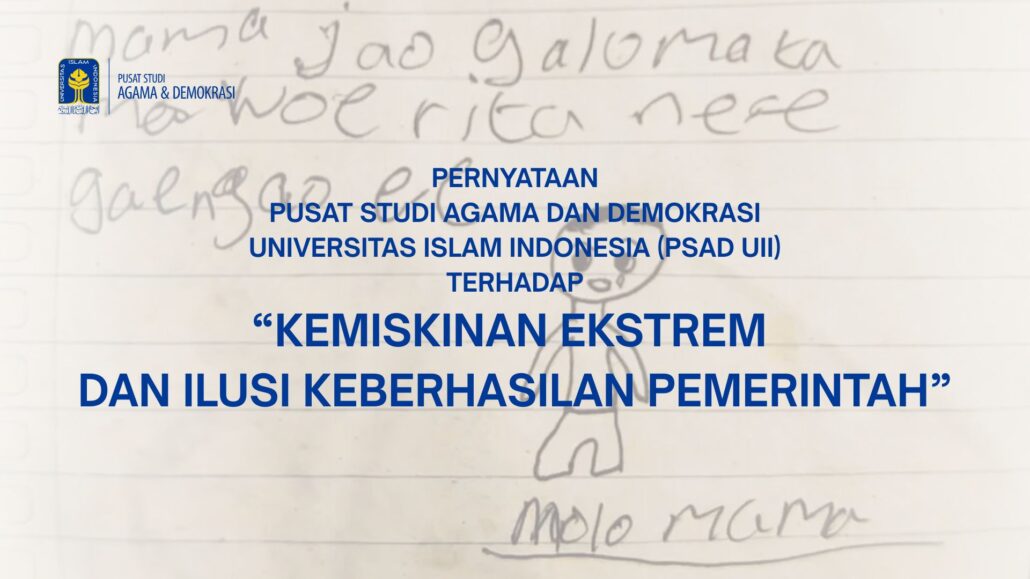 mama jao galo mata
mae woe rita nee
PUSAT STUDI
AGAMA & DEMOKRASI
UNIVERSITAS ISLAM INDONESIA
PERNYATAAN
PUSAT STUDI AGAMA DAN DEMOKRASI
UNIVERSITAS ISLAM INDONESIA (PSAD UII)
TERHADAP
“KEMISKINAN EKSTREM
DAN ILUSI KEBERHASILAN PEMERINTAH”
molo mama